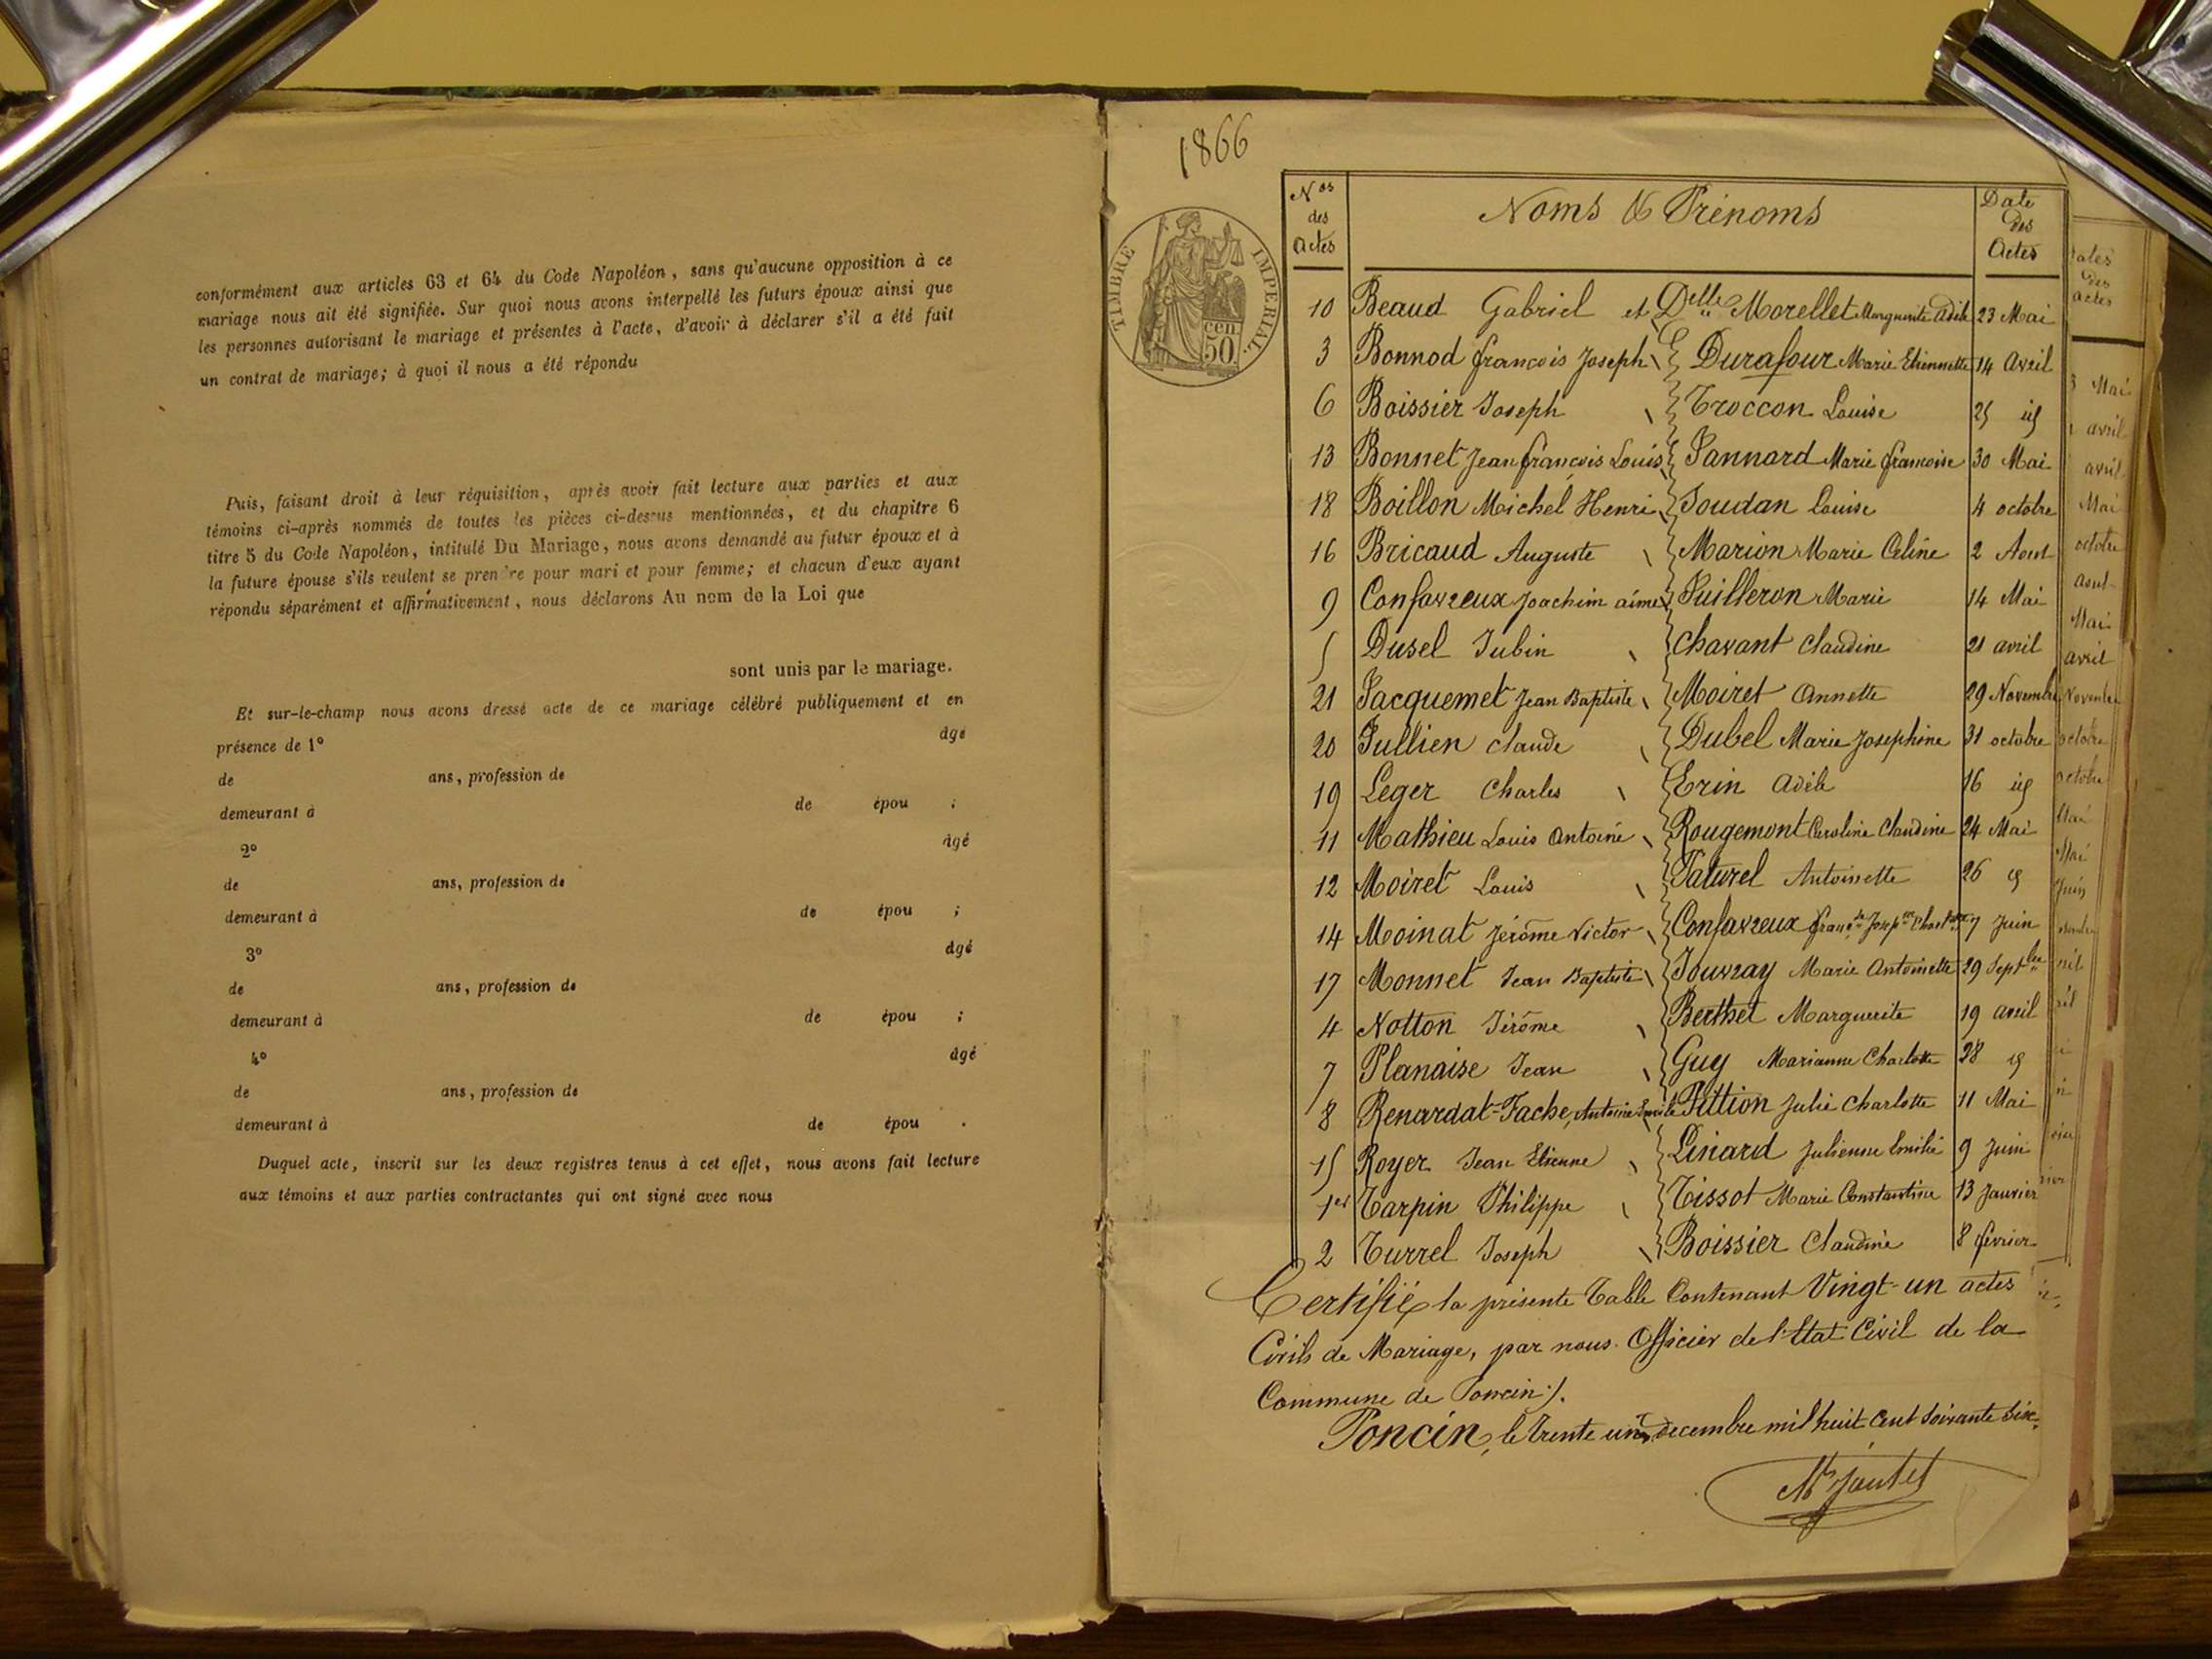 conformément aux articles 63 et 64 du Code Napoléon, sans qu'aucune opposition à ce
mariage nous ait été signifiée. Sur quoi nous avons interpellé les futurs époux ainsi que
les personnes autorisant le mariage et présentes à l'acte, d'avoir à déclarer s'il a été fait
un contrat de mariage; à quoi il nous a été répondu
Puis, faisant droit à leur réquisition, après avoir fait lecture aux parties et aux
témoins ci-après nommés de toutes les pièces ci-dessus mentionnées, et du chapitre 6
titre 5 du Code Napoléon, intitulé Du Mariage, nous avons demandé au futur époux et à
la future épouse s'ils veulent se prendre pour mari et pour femme; et chacun d'eux ayant
répondu séparément et affirmativement, nous déclarons Au nom de la Loi que
sont unis par le mariage.
Et sur-le-champ nous avons dressé acte de ce mariage célébré publiquement et en
présence de 1° âgé
de ans, profession de
demeurant à de épou ;
2° âgé
de ans, profession de
demeurant à de épou ;
3° âgé
de ans, profession de
demeurant à de épou ;
4° âgé
de ans, profession de
demeurant à de épou .
Duquel acte, inscrit sur les deux registres tenus à cet effet, nous avons fait lecture
aux témoins et aux parties contractantes qui ont signé avec nous
1866
TIMBRE IMPERIAL
50 cen
Nos des Actes Noms & Prénoms Date des Actes
10 Beaud Gabriel et Delle Morellet Marguerite Adèle 23 Mai
3 Bonnod françois Joseph Durafour Marie Etiennette 14 Avril
6 Boissier Joseph Troccon Louise 25 id
13 Bonnet Jean françois Louis Jannard Marie françoise 30 Mai
18 Boillon Michel Henri Joudan Louise 4 octobre
16 Bricaud Auguste Marion Marie Celine 2 Aout
9 Confavreux Joachim aimé Juilleron Marie 14 Mai
5 Dusel Jubin Chavant Claudine 21 avril
21 Jacquemet Jean Baptiste Moiret Annette 29 Novembre
20 Jullien Claude Dubel Marie Josephine 31 octobre
19 Leger Charles Erin Adèle 16 id
11 Mathieu Louis Antoine Rougemont Caroline Claudine 24 Mai
12 Moiret Louis Paturel Antoinette 26 id
14 Moinat Jérôme Victor Confavreux 7 Juin
17 Monnet Jean Baptiste Jouvray Marie Antoinette 29 Septbre
4 Notton Jérôme Berthet Marguerite 19 avril
7 Planaise Jean Guy Marianne Charlotte 28 id
8 Renardat-Fache, Antoine Emile Pittion Julie Charlotte 11 Mai
15 Royer Jean Etienne Linard Julienne Emilie 9 Juin
1er Tarpin Philippe Tissot Marie Constantine 13 Janvier
2 Turrel Joseph Boissier Claudine 8 fevrier
Certifié la présente Table Contenant Vingt-un actes
Civils de Mariage, par nous Officier de l'Etat Civil de la
Commune de Poncin ./.
Poncin, le trente un decembre mil huit Cent Soixante Six.